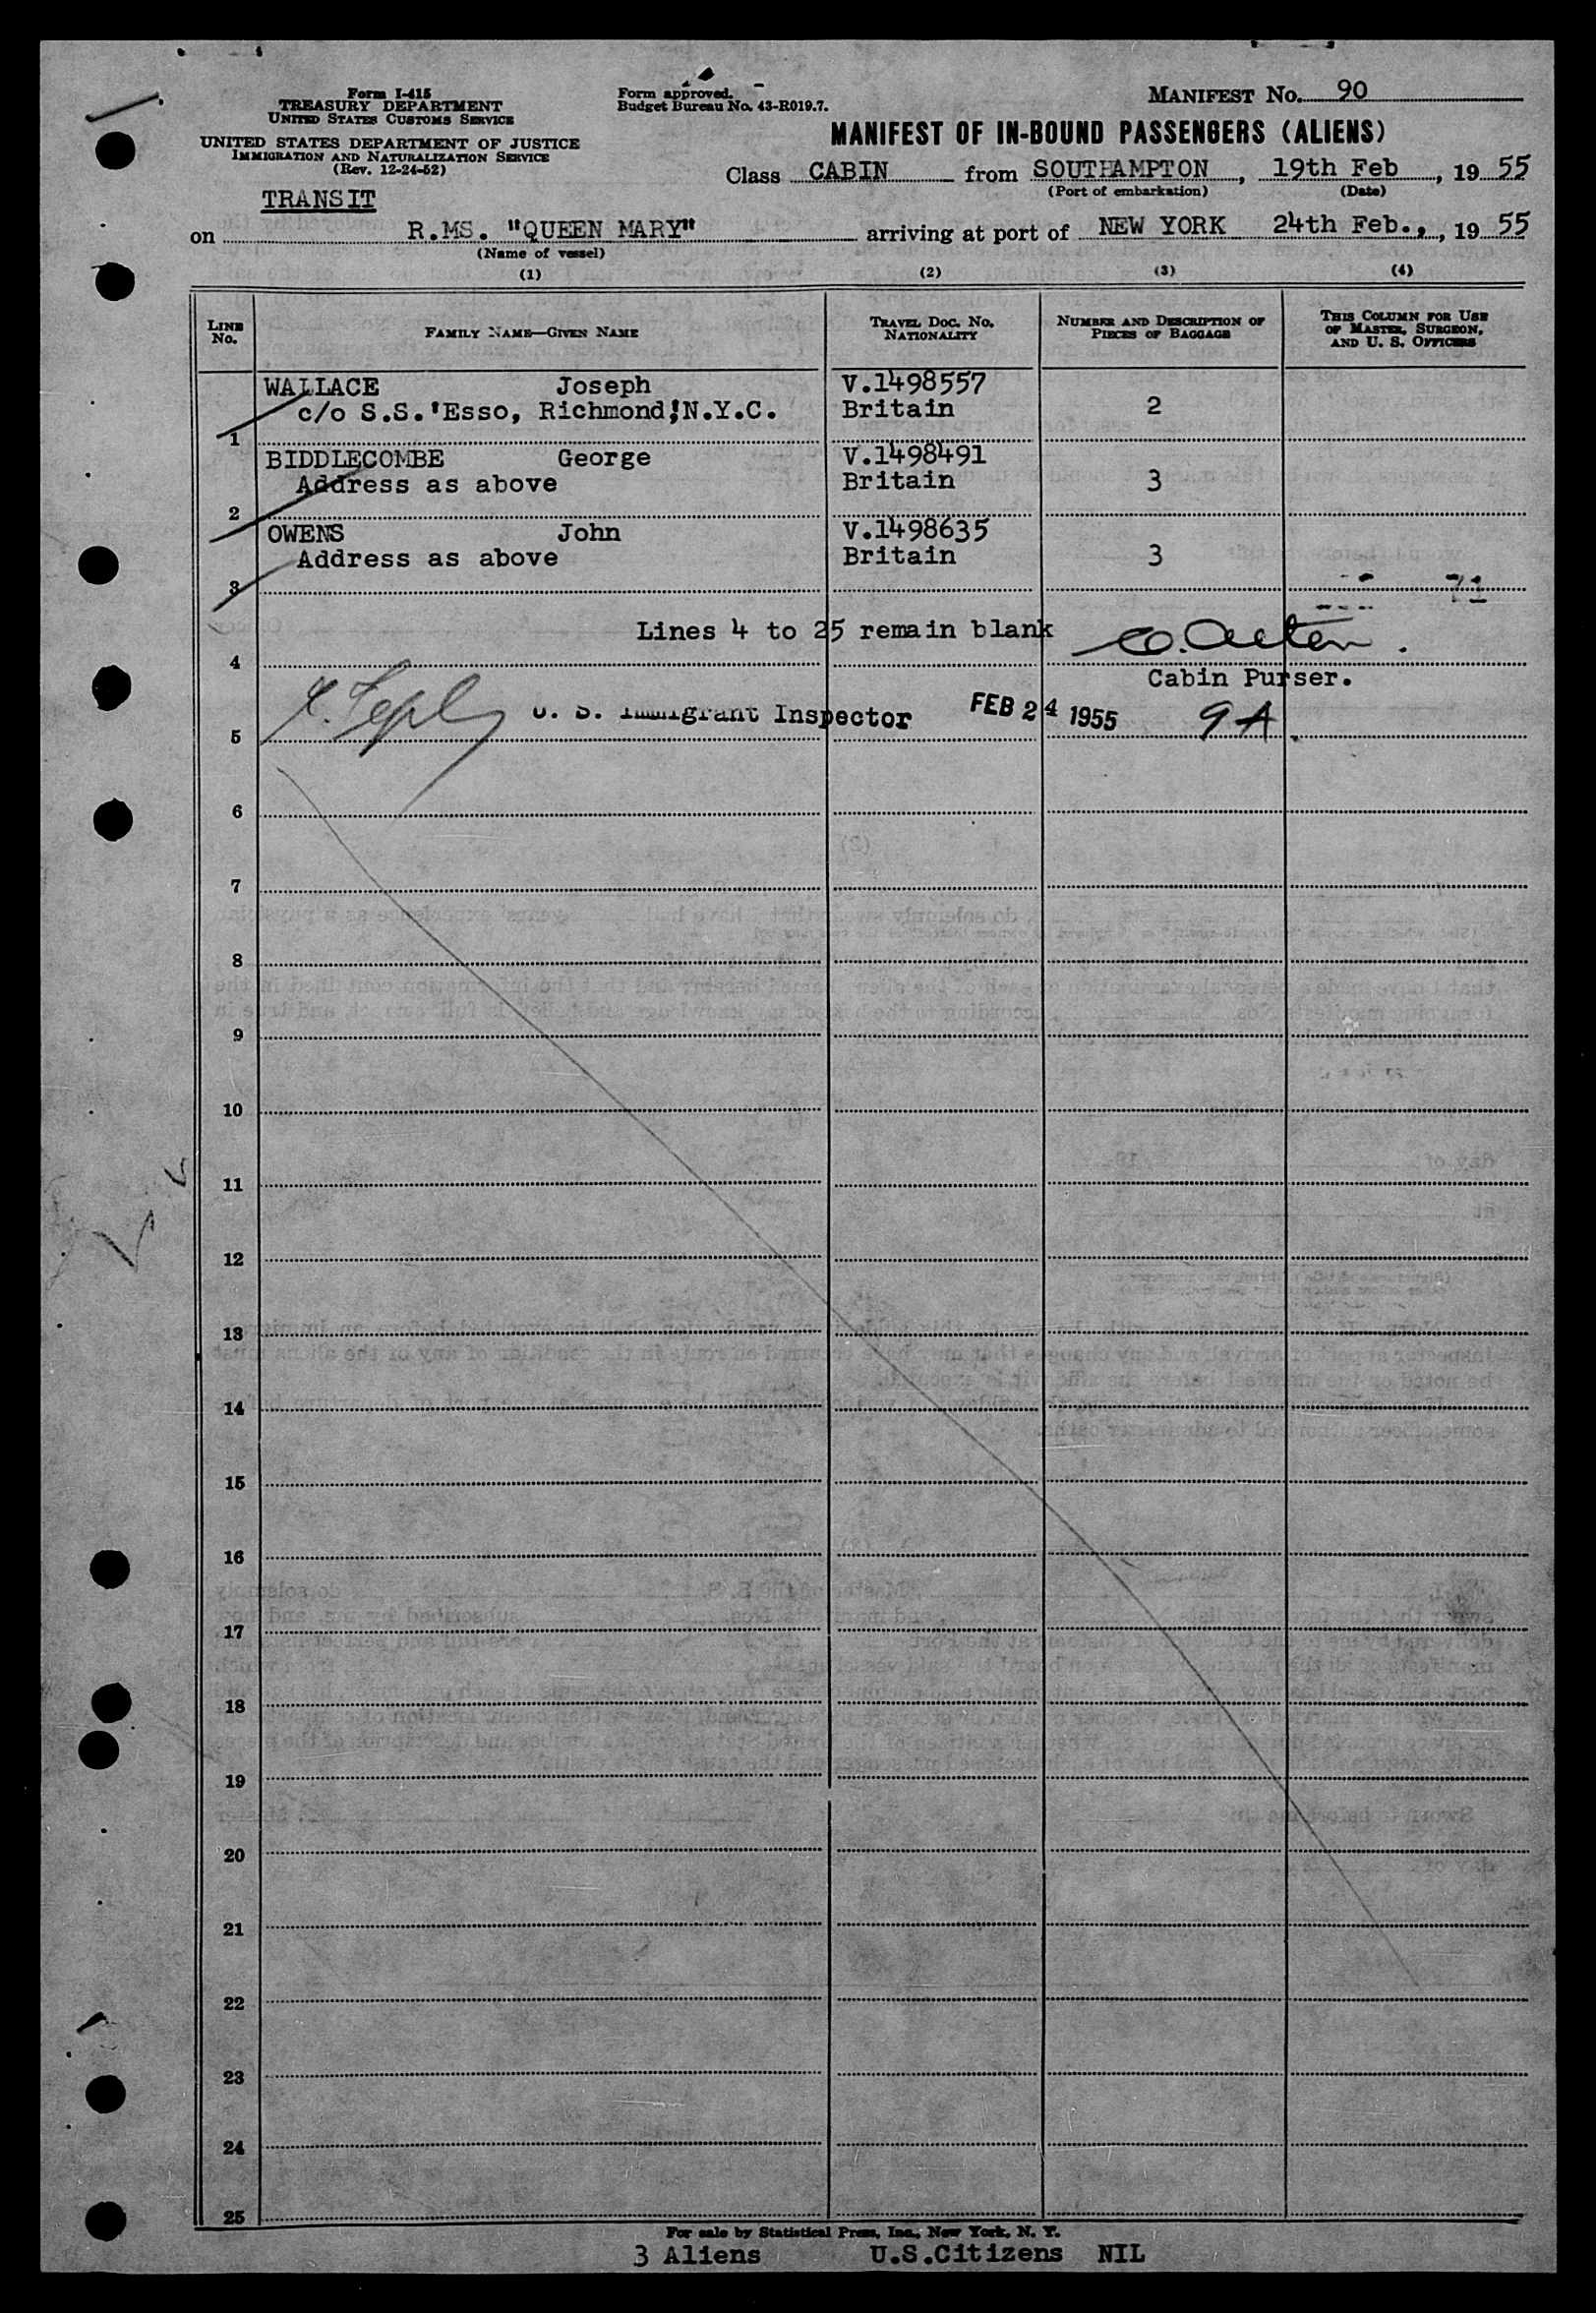 Form I-415
TREASURY DEPARTMENT
UNITED STATES CUSTOMS SERVICE
UNITED STATES DEPARTMENT OF JUSTICE
IMMIGRATION AND NATURALIZATION SERVICE
(Rev. 12-24-52)
TRANSIT
Form approved.
Budget Bureau No. 43-R019.7.
MANIFEST No. 90
MANIFEST OF IN-BOUND PASSENGERS (ALIENS)
Class CABIN from SOUTHAMPTON, 19th Feb, 19 55
(Port of embarkation) (Date)
on R.MS. "QUEEN MARY" arriving at port of NEW YORK 24th Feb., 19 55
(Name of vessel)
(1) (2) (3) (4)
LINE No. FAMILY NAME—GIVEN NAME TRAVEL DOC. No. NATIONALITY NUMBER AND DESCRIPTION OF PIECES OF BAGGAGE THIS COLUMN FOR USE OF MASTER, SURGEON, AND U. S. OFFICERS
WALLACE Joseph V.1498557
c/o S.S.'Esso, Richmond!N.Y.C. Britain 2
1
BIDDLECOMBE George V.1498491
Address as above Britain 3
2
OWENS John V.1498635
Address as above Britain 3
3 71
Lines 4 to 25 remain blank
4
Cabin Purser.
U. S. Immigrant Inspector FEB 24 1955 9A
5
6
7
8
9
10
11
12
13
14
15
16
17
18
19
20
21
22
23
24
25
For sale by Statistical Press, Inc., New York, N. Y.
3 Aliens U.S.Citizens NIL